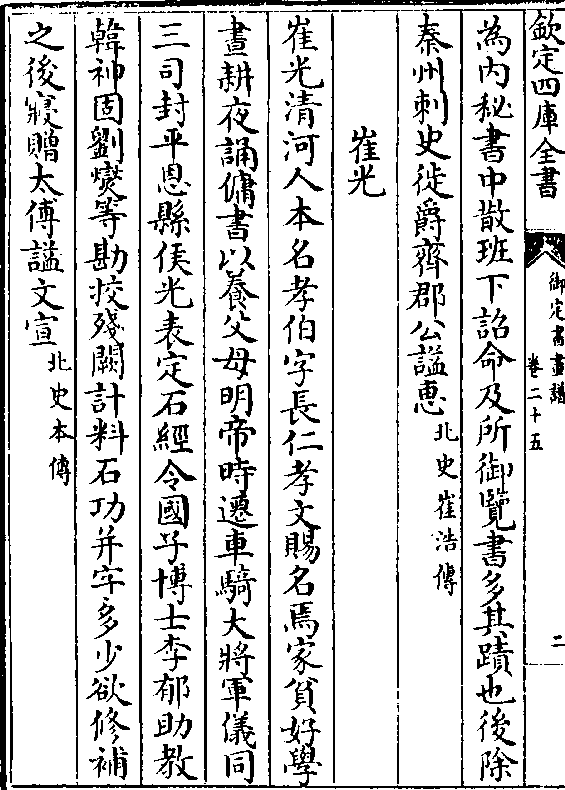 欽定四庫全書
御定書畫譜
卷二十五
二
為内秘書中散班下詔命及所御覽書多其蹟也後除
秦州刺史徙爵齊郡公諡惠北史崔浩傳
崔光
崔光清河人本名孝伯字長仁孝文賜名焉家貧好學
晝耕夜誦傭書以養父母明帝時遷車騎大將軍儀同
三司封平恩縣侯光表定石經令國子博士李郁助教
韓神固劉燮等勘挍殘闕計料石功并字多少欲修補
之後寢贈太傅諡文宣北史本傳